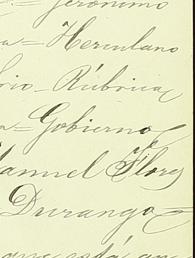 Jeronimo
a = Herculano
rio - Rúbrica
a = Gobierno
Manuel Flores
Durango =
que está an